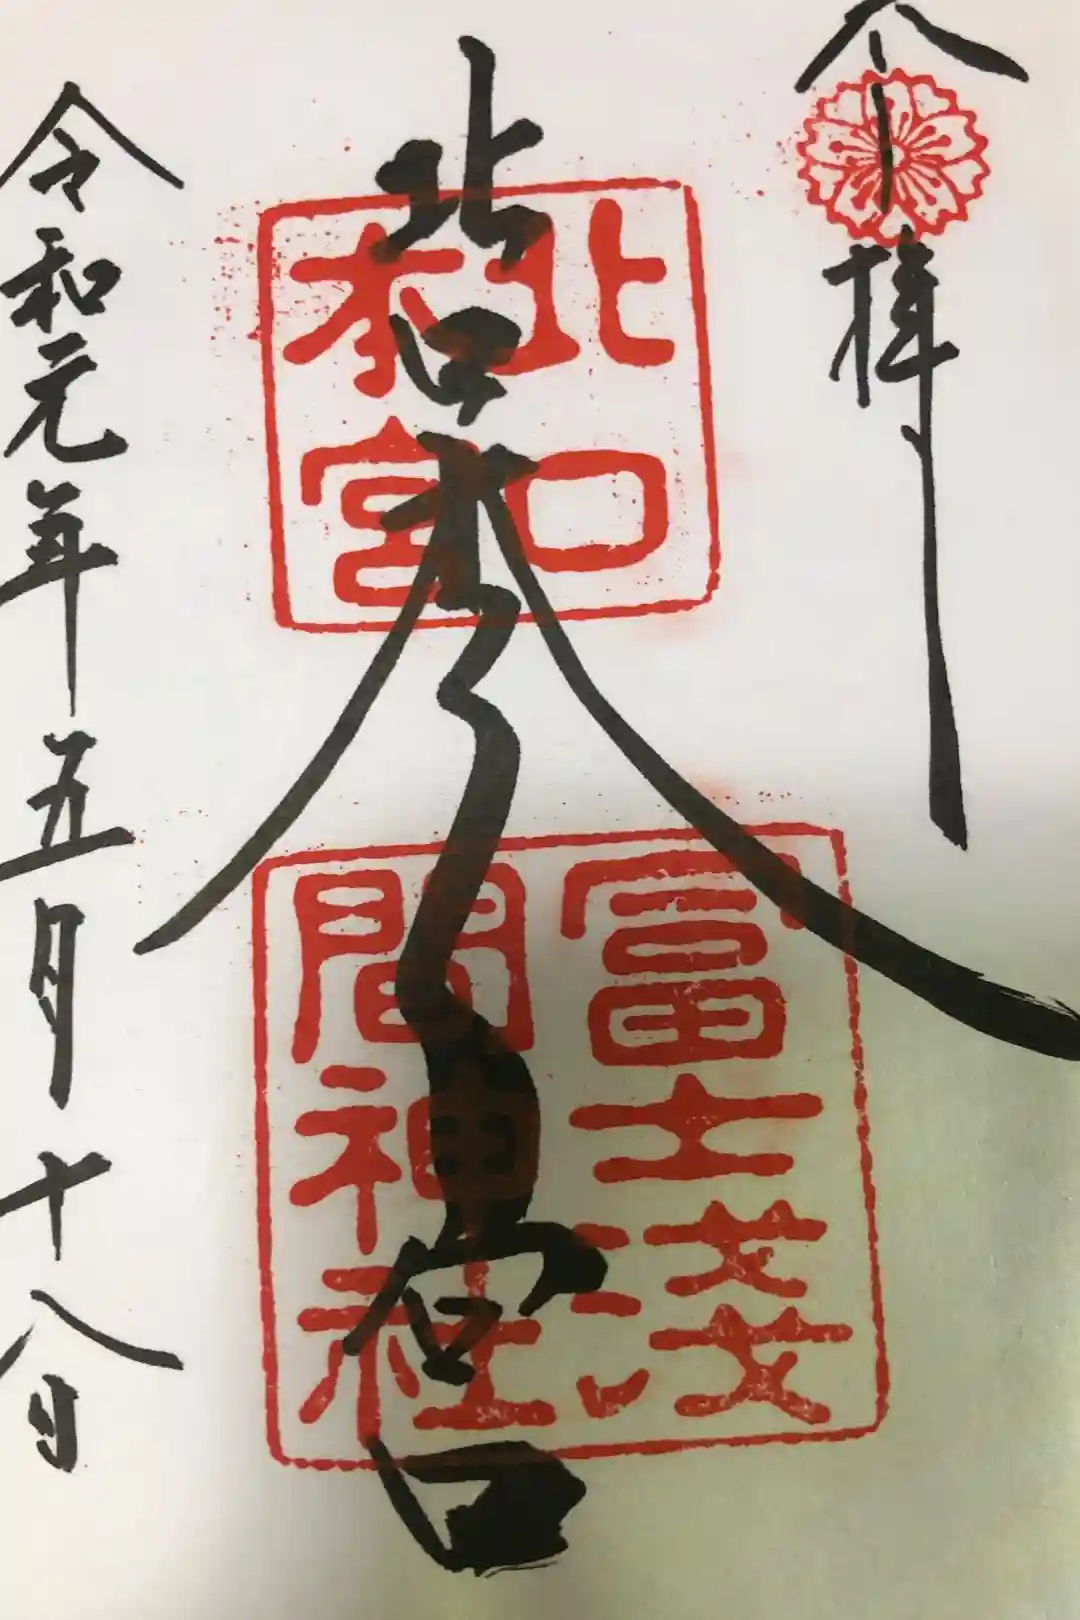 奉拝
北口本宮
北口
本宮
冨士浅
間神社
令和元年五月十八日